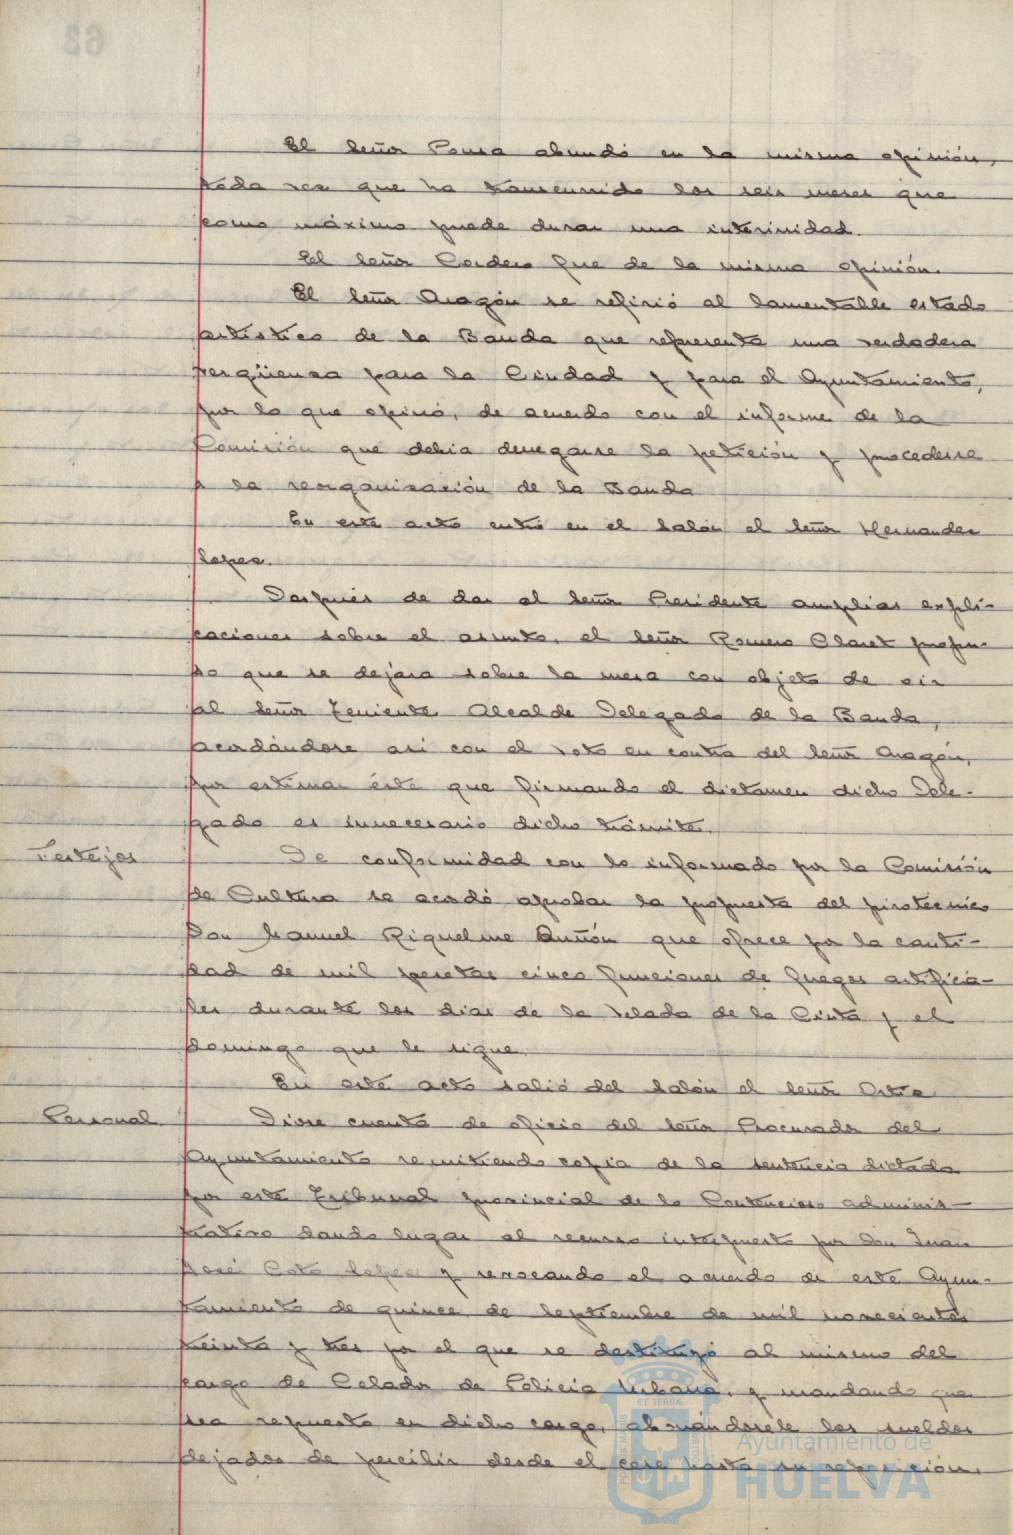 El señor Ponce abundó en la misma opinión,
toda vez que ha transcurrido los seis meses que
como máximo puede durar una interinidad.
El señor Cordero fue de la misma opinión.
El señor Aragón se refirió al lamentable estado
artístico de la Banda que representa una verdadera
vergüenza para la Ciudad y para el Ayuntamiento,
por lo que opinó, de acuerdo con el informe de la
Comisión que debía denegarse la petición y procederse
a la reorganización de la Banda
En este acto entró en el salón el señor Hernandez
López.
Después de dar el señor Presidente amplias expli-
caciones sobre el asunto, el señor Romero Claret propu-
so que se dejara sobre la mesa con objeto de oir
al señor Teniente Alcalde Delegado de la Banda,
acordándose así con el voto en contra del señor Aragón,
por estimar éste que firmando el dictamen dicho Dele-
gado es innecesario dicho trámite.
Festejos
De conformidad con lo informado por la Comisión
de Cultura se acordó aprobar la propuesta del pirotécnico
Don Manuel Riquelme Buñón que ofrece por la canti-
dad de mil pesetas cinco funciones de fuegos artificia-
les durante los días de la Velada de la Cinta y el
domingo que le sigue.
En este acto salió del salón el señor Oria
Personal.
Diose cuenta de oficio del señor Procurador del
Ayuntamiento remitiendo copia de la sentencia dictada
por este Tribunal provincial de lo Contencioso adminis-
trativo dando lugar al recurso interpuesto por Don Juan
José Coto López y revocando el acuerdo de este Ayun-
tamiento de quince de Septiembre de mil novecientos
treinta y tres por el que se destituyó al mismo del
cargo de Celador de Policía Urbana, y mandando que
sea repuesto en dicho cargo, abonándosele los sueldos
dejados de percibir desde el cese hasta su reposición.
Ayuntamiento de
HUELVA